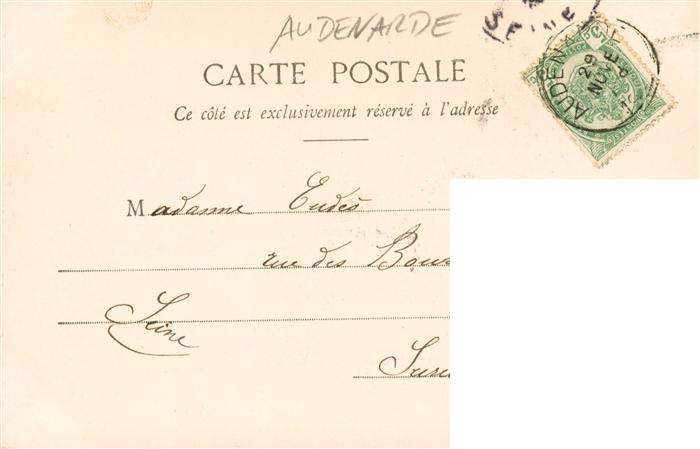 AUDENARDE
SEINE
CARTE POSTALE
Ce côté est exclusivement réservé à l'adresse
AUDENA
29
NOVE
Madame Eudes
rue des Bour
Seine
Sure